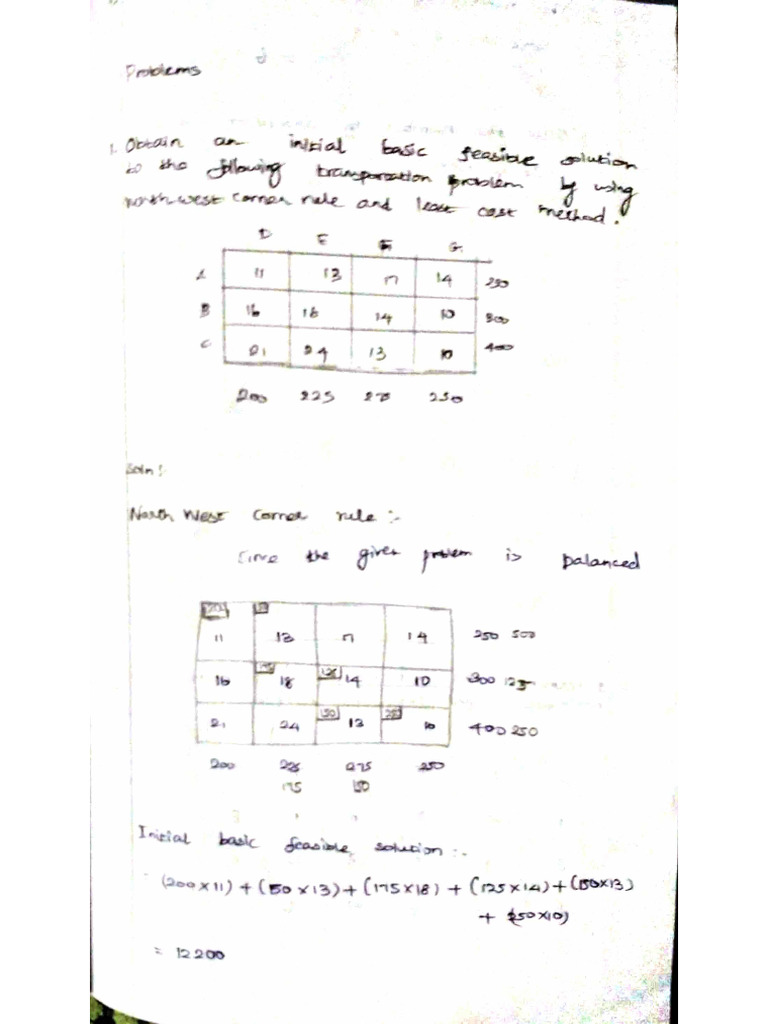 Problems
1. Obtain an initial basic feasible solution
to the following transporation problem by using
north-west corner rule and least cost method.
D E F G
A 11 13 17 14 250
B 16 18 14 10 300
C 21 24 13 10 400
200 225 275 250
Soln:
North West Corner rule :-
Since the given problem is balanced
200
11 13 17 14 250 500
175 125
16 18 14 10 300 125
150 250
21 24 13 10 400 250
200 225 275 250
175 150
Initial basic feasible solution :-
(200x11) + (50x13) + (175x18) + (125x14) + (150x13)
+ (250x10)
= 12200